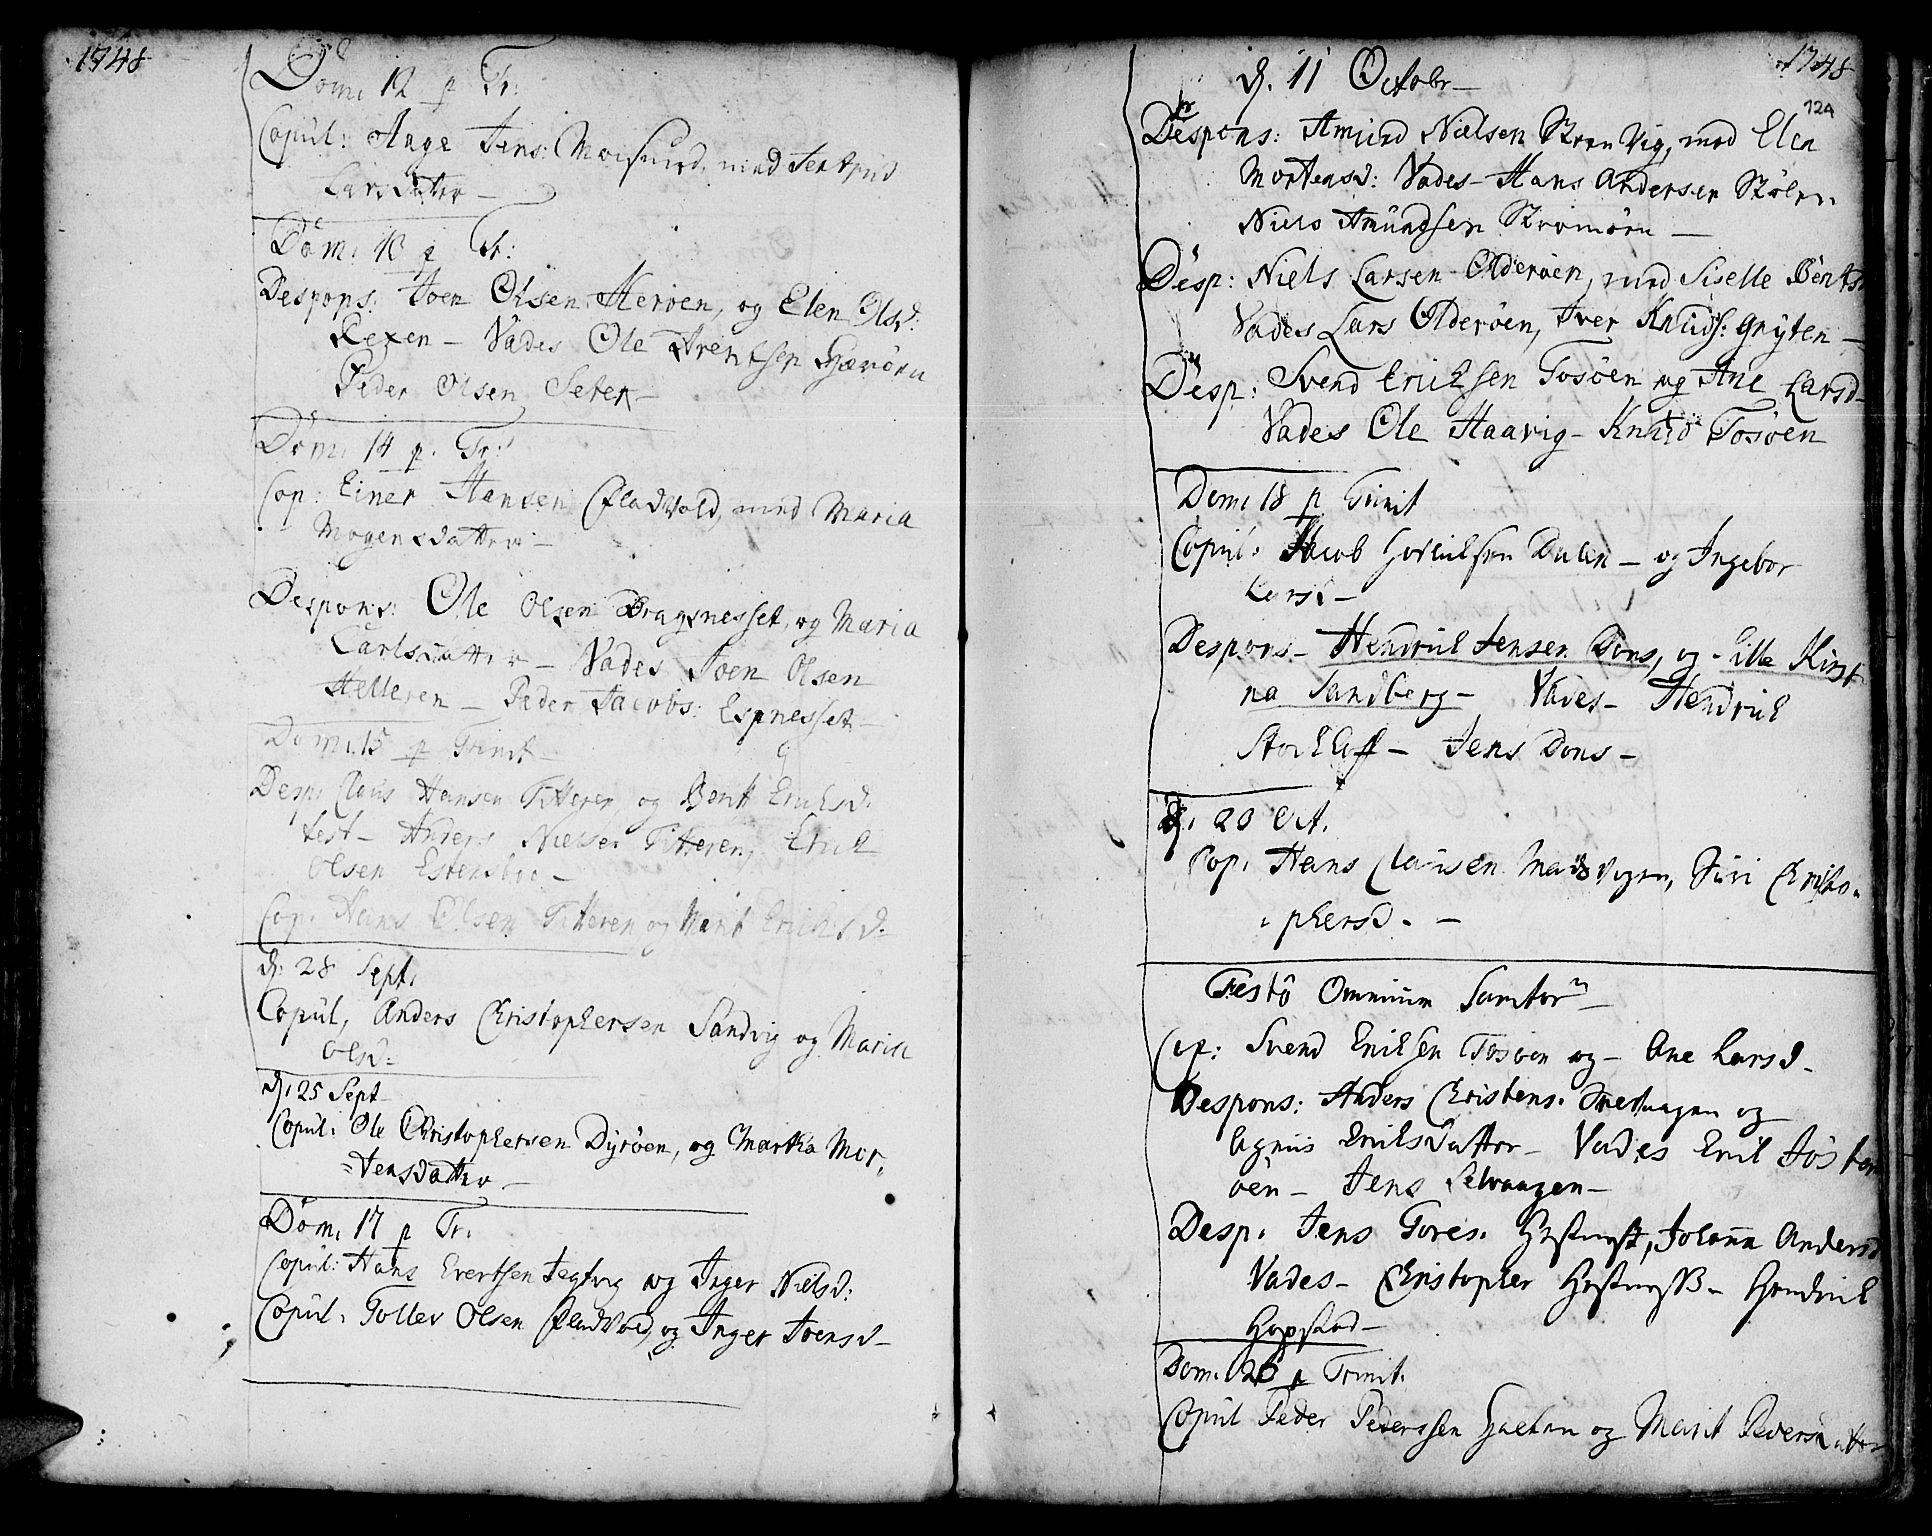 1748
Dom. 12 p Tr:
Copul: Aage Jens: Moesund, med Jertrud
Larsdatter —
Dom. 13 p Tr:
Despons: Joen Olsen Herøen, og Elen Olsd:
Rexen — Vades Ole Arentsen
Peder Olsen Seter —
Dom. 14 p. Tr:
Cop: Einer Hansen Fladvold, med Maria
Mogensdatter —
Despons: Ole Olsen Dragsnesset, og Maria
Carlsdatter — Vades Joen Olsen
Helleren — Peder Jacobs: Espnesset —
Dom. 15 p Trinit —
Desp. Claus Hansen Titteren, og Berit Eriksd.
test — Anders Nielsen Titteren, Erik
Olsen Estensboe —
Cop. Hans Olsen Titteren og Marit Erichsd.
d. 28 Sept.
Copul, Anders Christophersen Sandvig og Marit
Olsd:
d. 25 Sept
Copul: Ole Christophersen Dyrøen, og Martha Mor,
=tensdatter —
Dom. 17 p Tr.
Copul: Hans Evertsen Jegtvig og Inger Nielsd:
Copul. Tollev Olsen Fladvold, og Inger Joensd —
1748
124
d. 11 Octobr —
Despons: Amund Nielsen Strømvig, med Elen
Mortensd: Vades — Hans Andersen Stølen.
Niels Amundsen Strømøren —
Desp: Niels Larsen Olderøen, med Siselle Bentsd
Vades Lars Olderøen, Iver Knuds: Gryten —
Desp: Svend Eriksen Tosøen og Ane Larsd —
Vades Ole Haavig — Knud Tosøen
Dom. 18 p Trinit
Copul: Jacob Hendriksen Dalen — og Ingebor
Larsd —
Despons — Hendrik Jensen Dons, og Sille Kirst
na Sandberg — Vades — Hendrik
Stocklass — Jens Dons —
d. 20 Oct.
Cop. Hans Clausen Madsvigen, Siri Christo=
=phersd. —
Festo Omnium Sanctor —
Cop: Svend Eriksen Tosøen og — Ane Larsd —
Despons: Anders Christens. Medvagen og
Agniis Eriksdatter — Vades Erik Jøsten
øen — Jens Selvaagen —
Desp. Jens Tores. Johanna Andersd
Vades — Christopher Hendrik
Hopstad —
Dom. 26 p Trinit.
Copul Peder Pederssen og Marit Pedersdatter